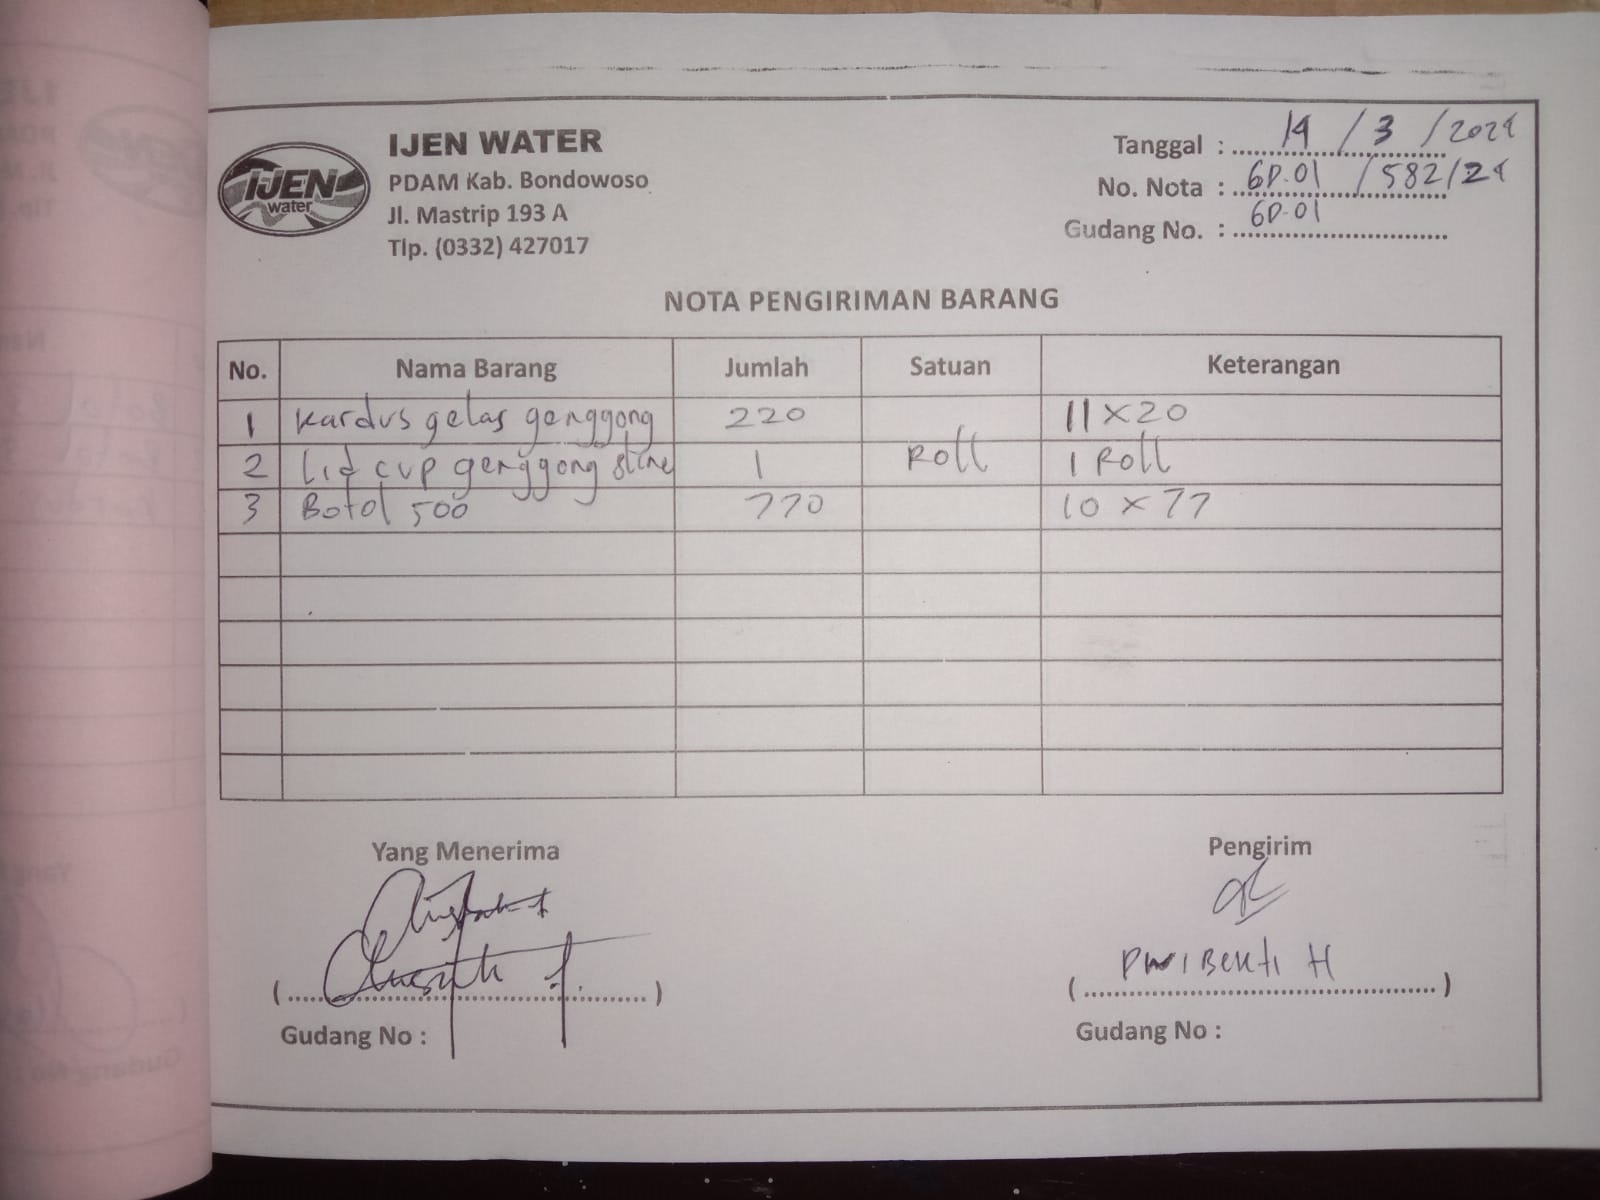 IJEN
water
IJEN WATER
PDAM Kab. Bondowoso
Jl. Mastrip 193 A
Tlp. (0332) 427017
Tanggal : 14 / 3 / 2024
No. Nota : GD.01 / 582/24
Gudang No. : GD-01
NOTA PENGIRIMAN BARANG
No. Nama Barang Jumlah Satuan Keterangan
1 Kardus gelas genggong 220 11 x 20
2 Lid cup genggong 1 Roll 1 Roll
3 Botol 500 770 10 x 77
Yang Menerima
Pengirim
Dwi Bekti H
(....................) (....................)
Gudang No : Gudang No :